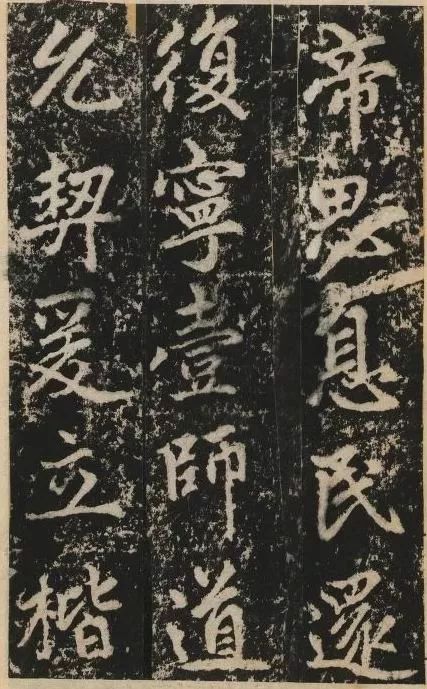 帝思息民還
復寧壹師道
允契爰立楷